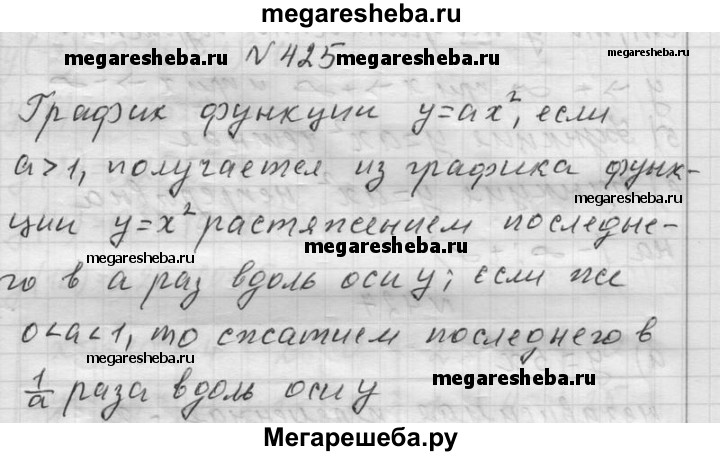 megaresheba.ru
megaresheba.ru № 425 megaresheba.ru megaresheba.ru
График функции y=ax², если
a>1, получается из графика функ-
megaresheba.ru
ции y=x² растяжением последне-
megaresheba.ru megaresheba.ru
го в a раз вдоль оси y; если же
0<a<1, то сжатием последнего в
megaresheba.ru megaresheba.ru
1/a раза вдоль оси y
megaresheba.ru
Мегарешеба.ру